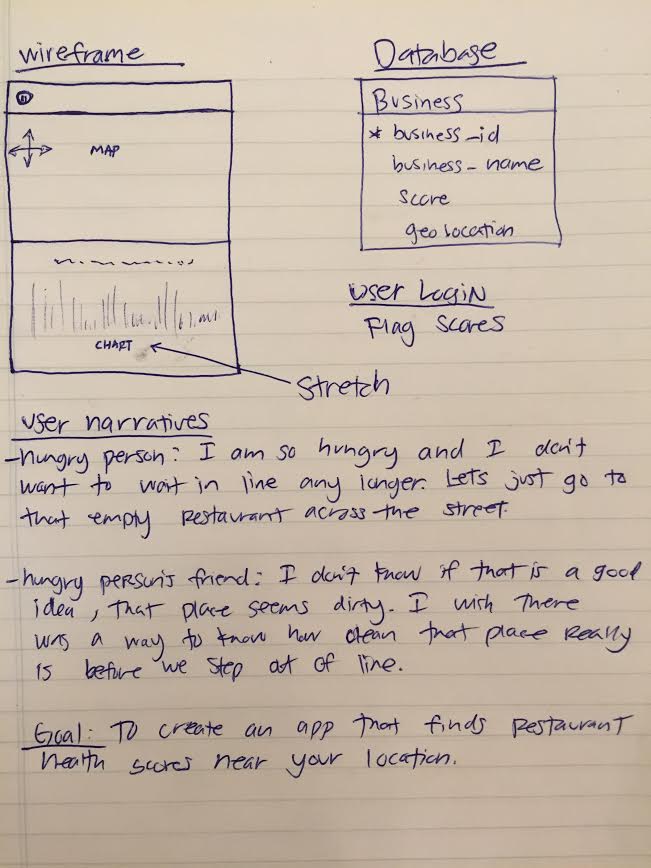 wireframe
MAP
CHART
Stretch
Database
Business
* business_id
business_name
score
geolocation
User Login
Flag Scores
user narratives
- hungry person: I am so hungry and I don't
want to wait in line any longer. Lets just go to
that empty restaurant across the street.
- hungry person's friend: I don't know if that is a good
idea, that place seems dirty. I wish there
was a way to know how clean that place really
is before we step out of line.
Goal: To create an app that finds restaurant
health scores near your location.